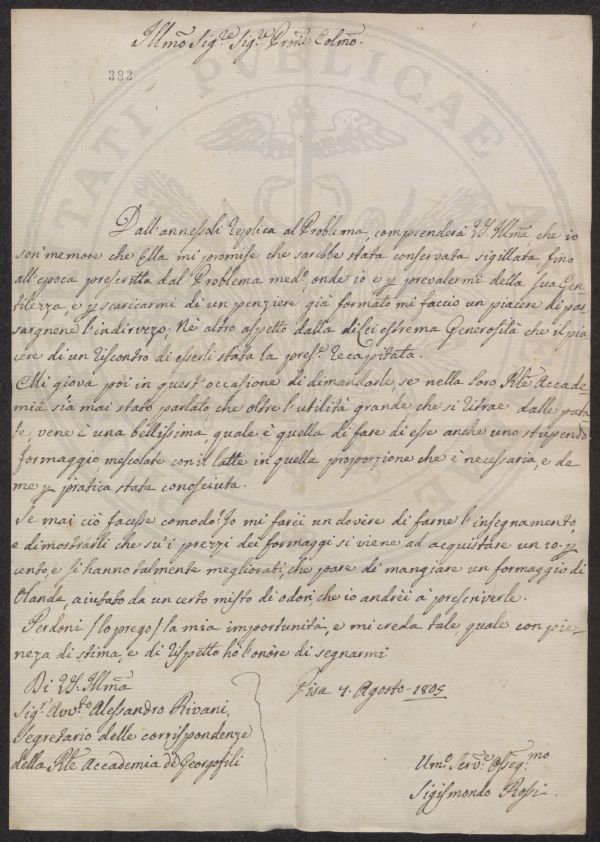 Illmo Sigre Sigre Prone Colmo.
382
Dall'annessoli Replica al Problema, comprenderà VS. Illma, che io
son memore che Ella mi promise che sarebbe stata conservata sigillata fino
all'epoca prescritta dal Problema medo, onde io e p prevalermi della sua Gen
tilezza, e p scaricarmi di un penziere già formato mi faccio un piacere di pas
sargnene l'indirizzo, Nè altro aspetto dalla di lei estrema Generosità che il pia
cere di un riscontro di esserli stata la prese recapitata.
Mi giova poi in quest'occasione di dimandarle se nella loro Rle Accade-
mia sia mai stato parlato che oltre l'utilità grande che si ritrae dalle pata
te, vene è una bellissima, quale è quella di fare di esse anche uno stupendo
formaggio mescolate con il latte in quella proporzione che è necessaria, e da
me p pratica stata conosciuta.
Se mai ciò facesse comodo! Io mi farei un dovere di farne l'insegnamento,
e dimostrarli che su i prezzi dei formaggi si viene ad acquistare un 20. p
cento, e si hanno talmente megliorati, che pare di mangiare un formaggio di
Olanda, aiutato da un certo misto di odori, che io andrei a prescriverle.
Perdoni /lo prego/ la mia importunità, e mi creda tale, quale con pie-
nezza di stima, e di rispetto ho l'onore di segnarmi
Di VS. Illma
Pisa 7. Agosto 1805
Sigr Avvto Alessandro Rivani,
Segretario delle corrispondenze
della Rle Accademia de Georgofili
Umo Serve Osseqmo
Sigismondo Rossi
TATI PUBLICAE